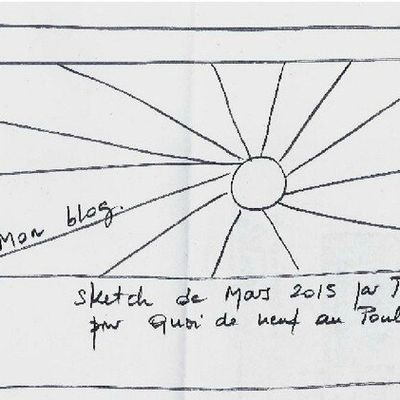 Mon blog.
Sketch de Mars 2015 par
pour Quoi de neuf au Poul